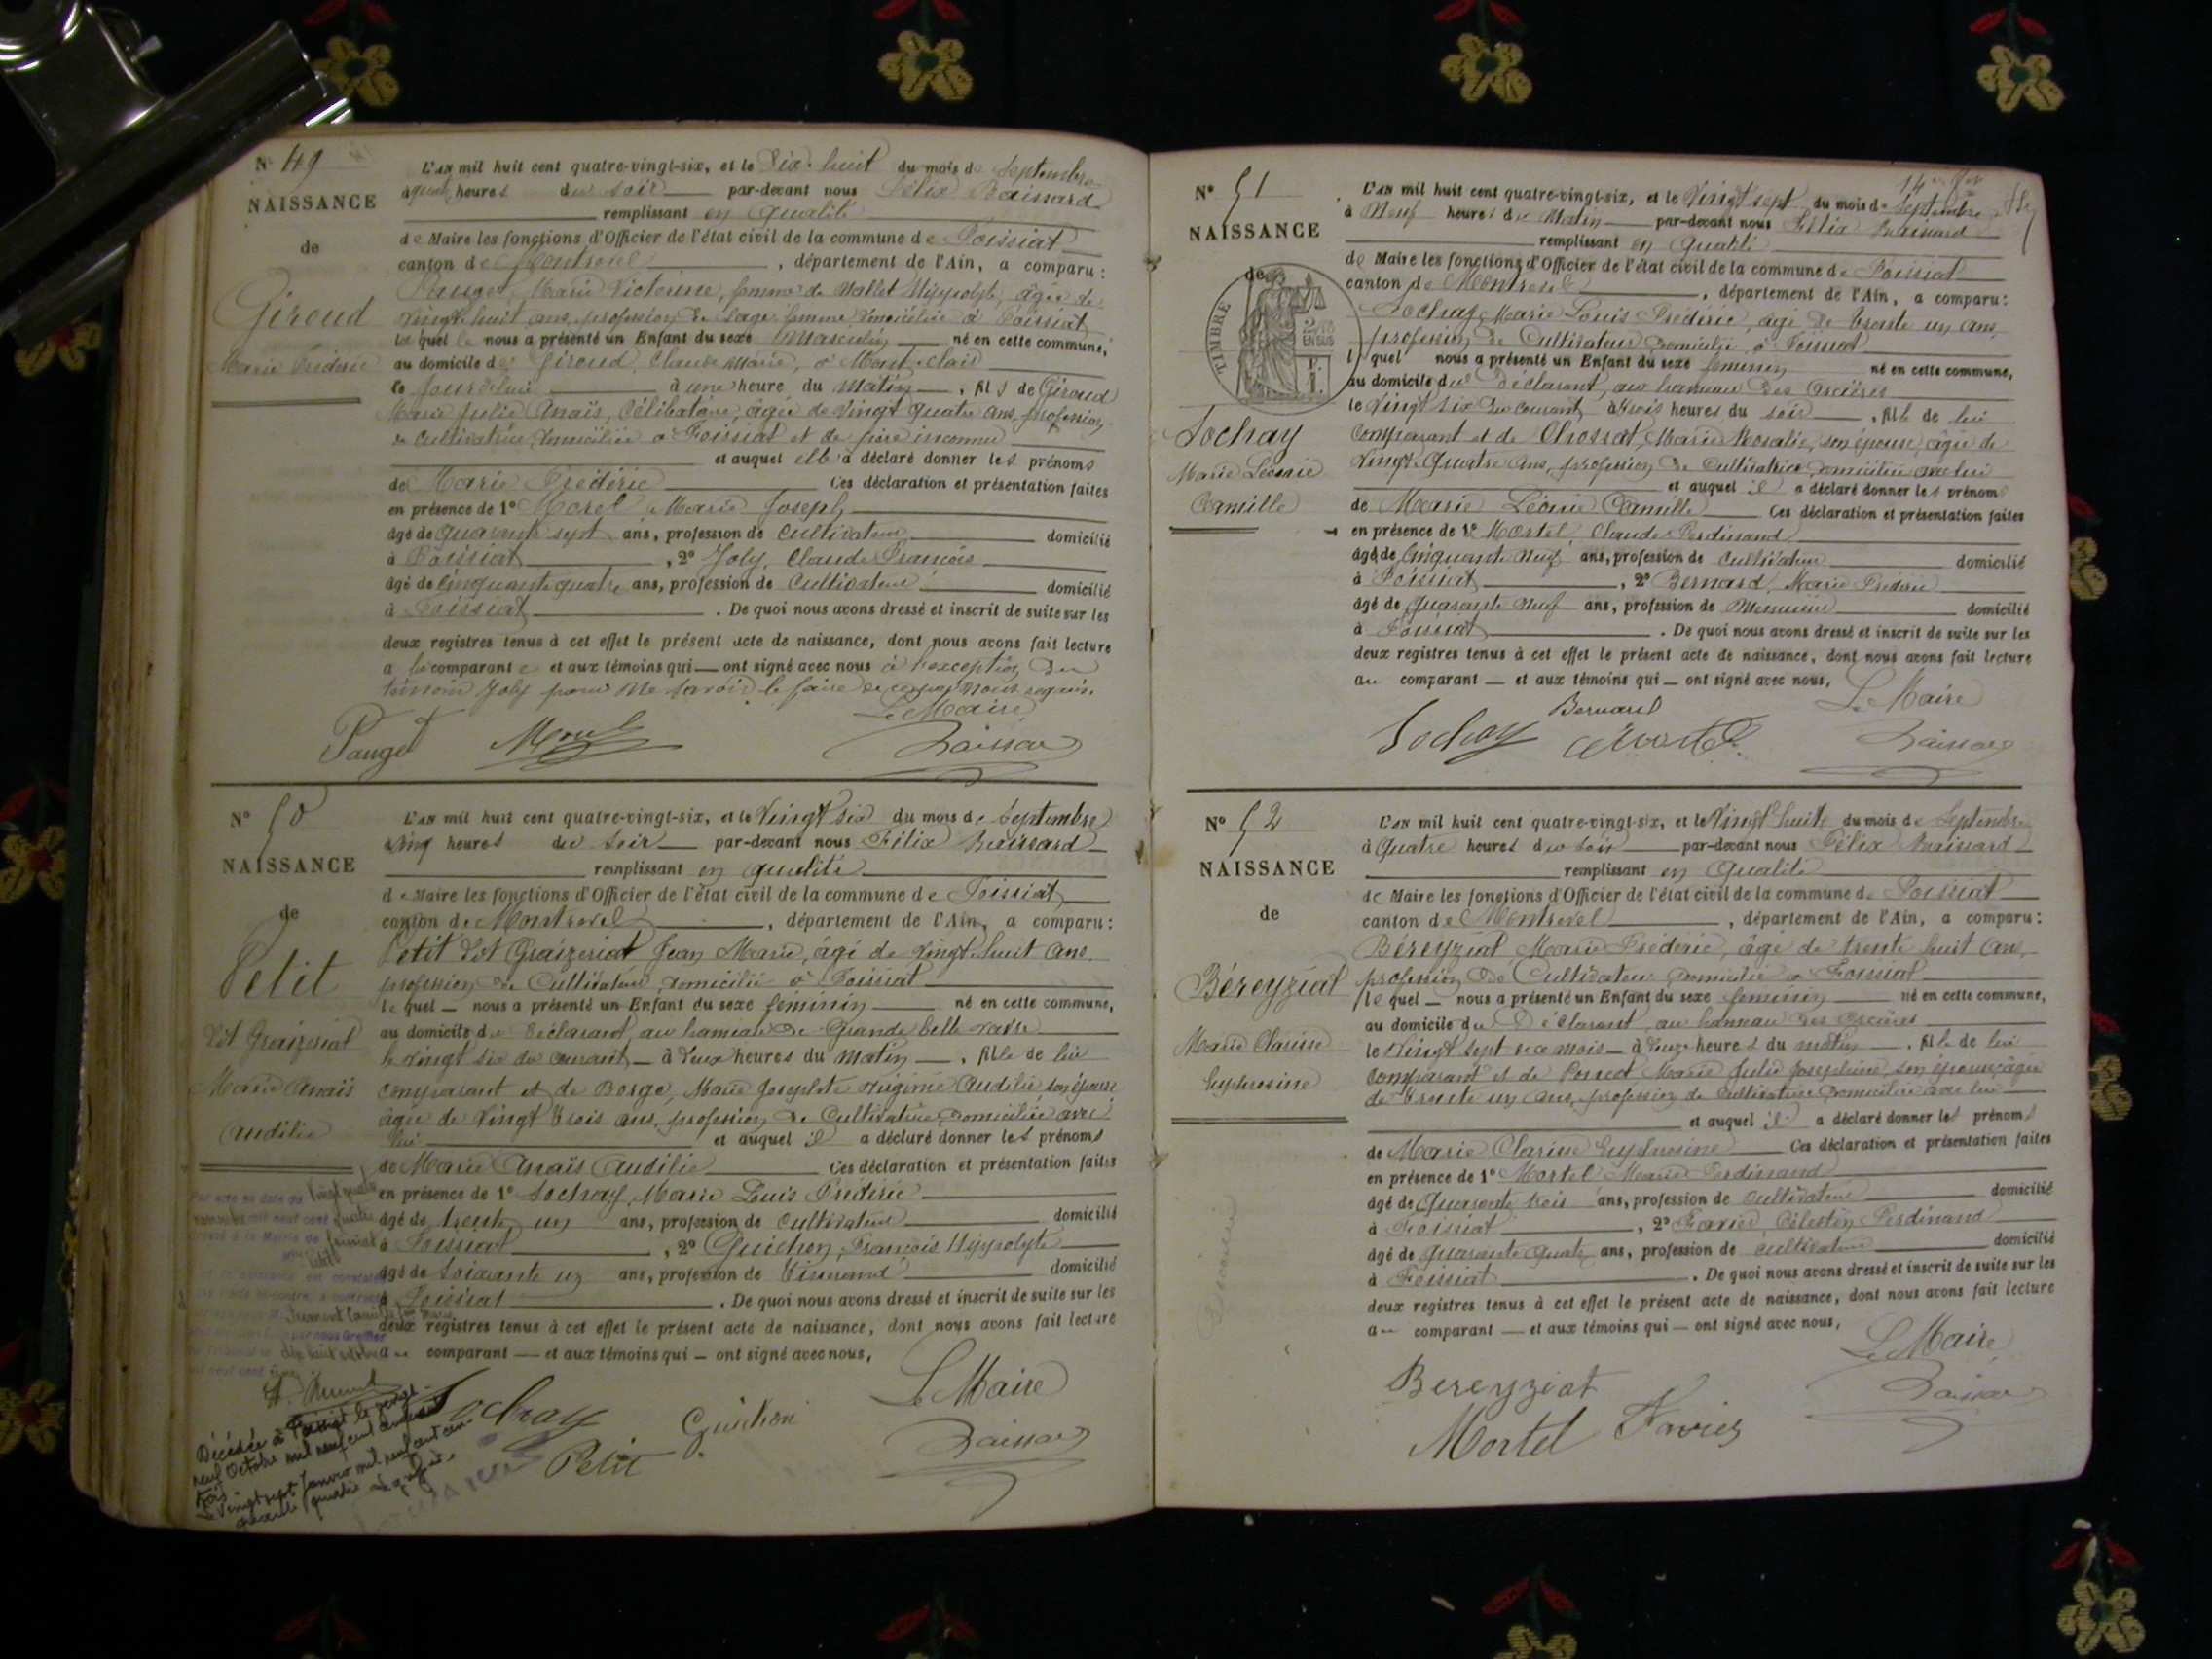 N° 49
NAISSANCE
de
Giroud
Marie Frédéric
L'AN mil huit cent quatre-vingt-six, et le Dix-huit du mois de Septembre
à quatre heures du soir par-devant nous Félix Baissard
remplissant en qualité
de Maire les fonctions d'Officier de l'état civil de la commune de Foissiat
canton de Montrevel, département de l'Ain, a comparu :
Pauget, Marie Victorine, femme de Mallet Hippolyte, âgée de
vingt-huit ans, profession de sage-femme domiciliée à Foissiat
laquelle nous a présenté un Enfant du sexe masculin né en cette commune,
au domicile de Giroud, Claude Marie, à
ce jourd'hui à une heure du matin, fils de Giroud
Marie Julie Anaïs, Célibataire, âgée de vingt quatre ans, profession
de cultivatrice domiciliée à Foissiat et de père inconnu
et auquel elle a déclaré donner les prénoms
de Marie Frédéric Ces déclaration et présentation faites
en présence de 1° Morel, Marie Joseph
âgé de quarante sept ans, profession de cultivateur domicilié
à Foissiat, 2° Joly, Claude François
âgé de cinquante quatre ans, profession de cultivateur domicilié
à Foissiat. De quoi nous avons dressé et inscrit de suite sur les
deux registres tenus à cet effet le présent acte de naissance, dont nous avons fait lecture
a la comparante et aux témoins qui ont signé avec nous à l'exception du
témoin Joly pour ne savoir le faire de ce par nous requis.
Le Maire
Pauget Morel Baissard
N° 50
NAISSANCE
de
Petit
dit Graizeriat
Marie Anaïs
Audilie
L'AN mil huit cent quatre-vingt-six, et le Vingt six du mois de Septembre
à cinq heures du soir par-devant nous Félix Baissard
remplissant en qualité
de Maire les fonctions d'Officier de l'état civil de la commune de Foissiat
canton de Montrevel, département de l'Ain, a comparu :
Petit dit Graizeriat Jean Marie, âgé de vingt huit ans
profession de Cultivateur domicilié à Foissiat
le quel nous a présenté un Enfant du sexe féminin né en cette commune,
au domicile du déclarant, au hameau de Grande belle
le vingt six du courant à deux heures du matin, fille de lui
comparant et de Borge, Marie Josephte Audilie son épouse
âgée de vingt trois ans, profession de Cultivatrice domiciliée avec
lui et auquel il a déclaré donner les prénoms
de Marie Anaïs Audilie Ces déclaration et présentation faites
en présence de 1° Sochay, Marie Louis Frédéric
âgé de trente un ans, profession de cultivateur domicilié
à Foissiat, 2° Guichon, François Hippolyte
âgé de soixante un ans, profession de Tisserand domicilié
à Foissiat. De quoi nous avons dressé et inscrit de suite sur les
deux registres tenus à cet effet le présent acte de naissance, dont nous avons fait lecture
au comparant et aux témoins qui ont signé avec nous,
Le Maire
Sochay Guichon
Petit Baissard
Décédée à Foissiat le vingt
neuf Octobre mil neuf cent
trois
Le Vingt sept Janvier mil neuf cent
quarante quatre
N° 51
NAISSANCE
de
TIMBRE
Sochay
Marie Léonie
Camille
L'AN mil huit cent quatre-vingt-six, et le Vingt sept du mois de Septembre
à Neuf heures du Matin par-devant nous Félix Baissard
remplissant en qualité
de Maire les fonctions d'Officier de l'état civil de la commune de Foissiat
canton de Montrevel, département de l'Ain, a comparu :
Sochay, Marie Louis Frédéric, âgé de trente un ans,
profession de Cultivateur domicilié à Foissiat
lequel nous a présenté un Enfant du sexe féminin né en cette commune,
au domicile du déclarant, au hameau des
le vingt six du courant à trois heures du soir, fille de lui
comparant et de Chossat, Marie Rosalie, son épouse, âgée de
vingt quatre ans, profession de cultivatrice domiciliée avec lui
et auquel il a déclaré donner les prénoms
de Marie Léonie Camille Ces déclaration et présentation faites
en présence de 1° Mortel, Claude Ferdinand
âgé de cinquante neuf ans, profession de cultivateur domicilié
à Foissiat, 2° Bernard, Marie Frédéric
âgé de quarante neuf ans, profession de Menuisier domicilié
à Foissiat. De quoi nous avons dressé et inscrit de suite sur les
deux registres tenus à cet effet le présent acte de naissance, dont nous avons fait lecture
au comparant et aux témoins qui ont signé avec nous,
Le Maire
Bernard
Sochay Mortel Baissard
N° 52
NAISSANCE
de
Béreyziat
Marie Clarisse
Euphrosine
L'AN mil huit cent quatre-vingt-six, et le Vingt huit du mois de Septembre
à Quatre heures du soir par-devant nous Félix Baissard
remplissant en qualité
de Maire les fonctions d'Officier de l'état civil de la commune de Foissiat
canton de Montrevel, département de l'Ain, a comparu :
Béreyziat, Marie Frédéric, âgé de trente huit ans,
profession de Cultivateur domicilié à Foissiat
lequel nous a présenté un Enfant du sexe féminin né en cette commune,
au domicile du Déclarant, au hameau des
le Vingt sept de ce mois à heures du matin, fille de lui
comparant et de Marie Julie Josephine, son épouse, âgée
de trente un ans, profession de cultivatrice domiciliée avec lui
et auquel il a déclaré donner les prénoms
de Marie Clarisse Euphrosine Ces déclaration et présentation faites
en présence de 1° Mortel Marie Ferdinand
âgé de Quarante trois ans, profession de cultivateur domicilié
à Foissiat, 2° Favier, Célestin Ferdinand
âgé de quarante quatre ans, profession de cultivateur domicilié
à Foissiat. De quoi nous avons dressé et inscrit de suite sur les
deux registres tenus à cet effet le présent acte de naissance, dont nous avons fait lecture
au comparant et aux témoins qui ont signé avec nous,
Le Maire
Bereyziat Baissard
Mortel Favier